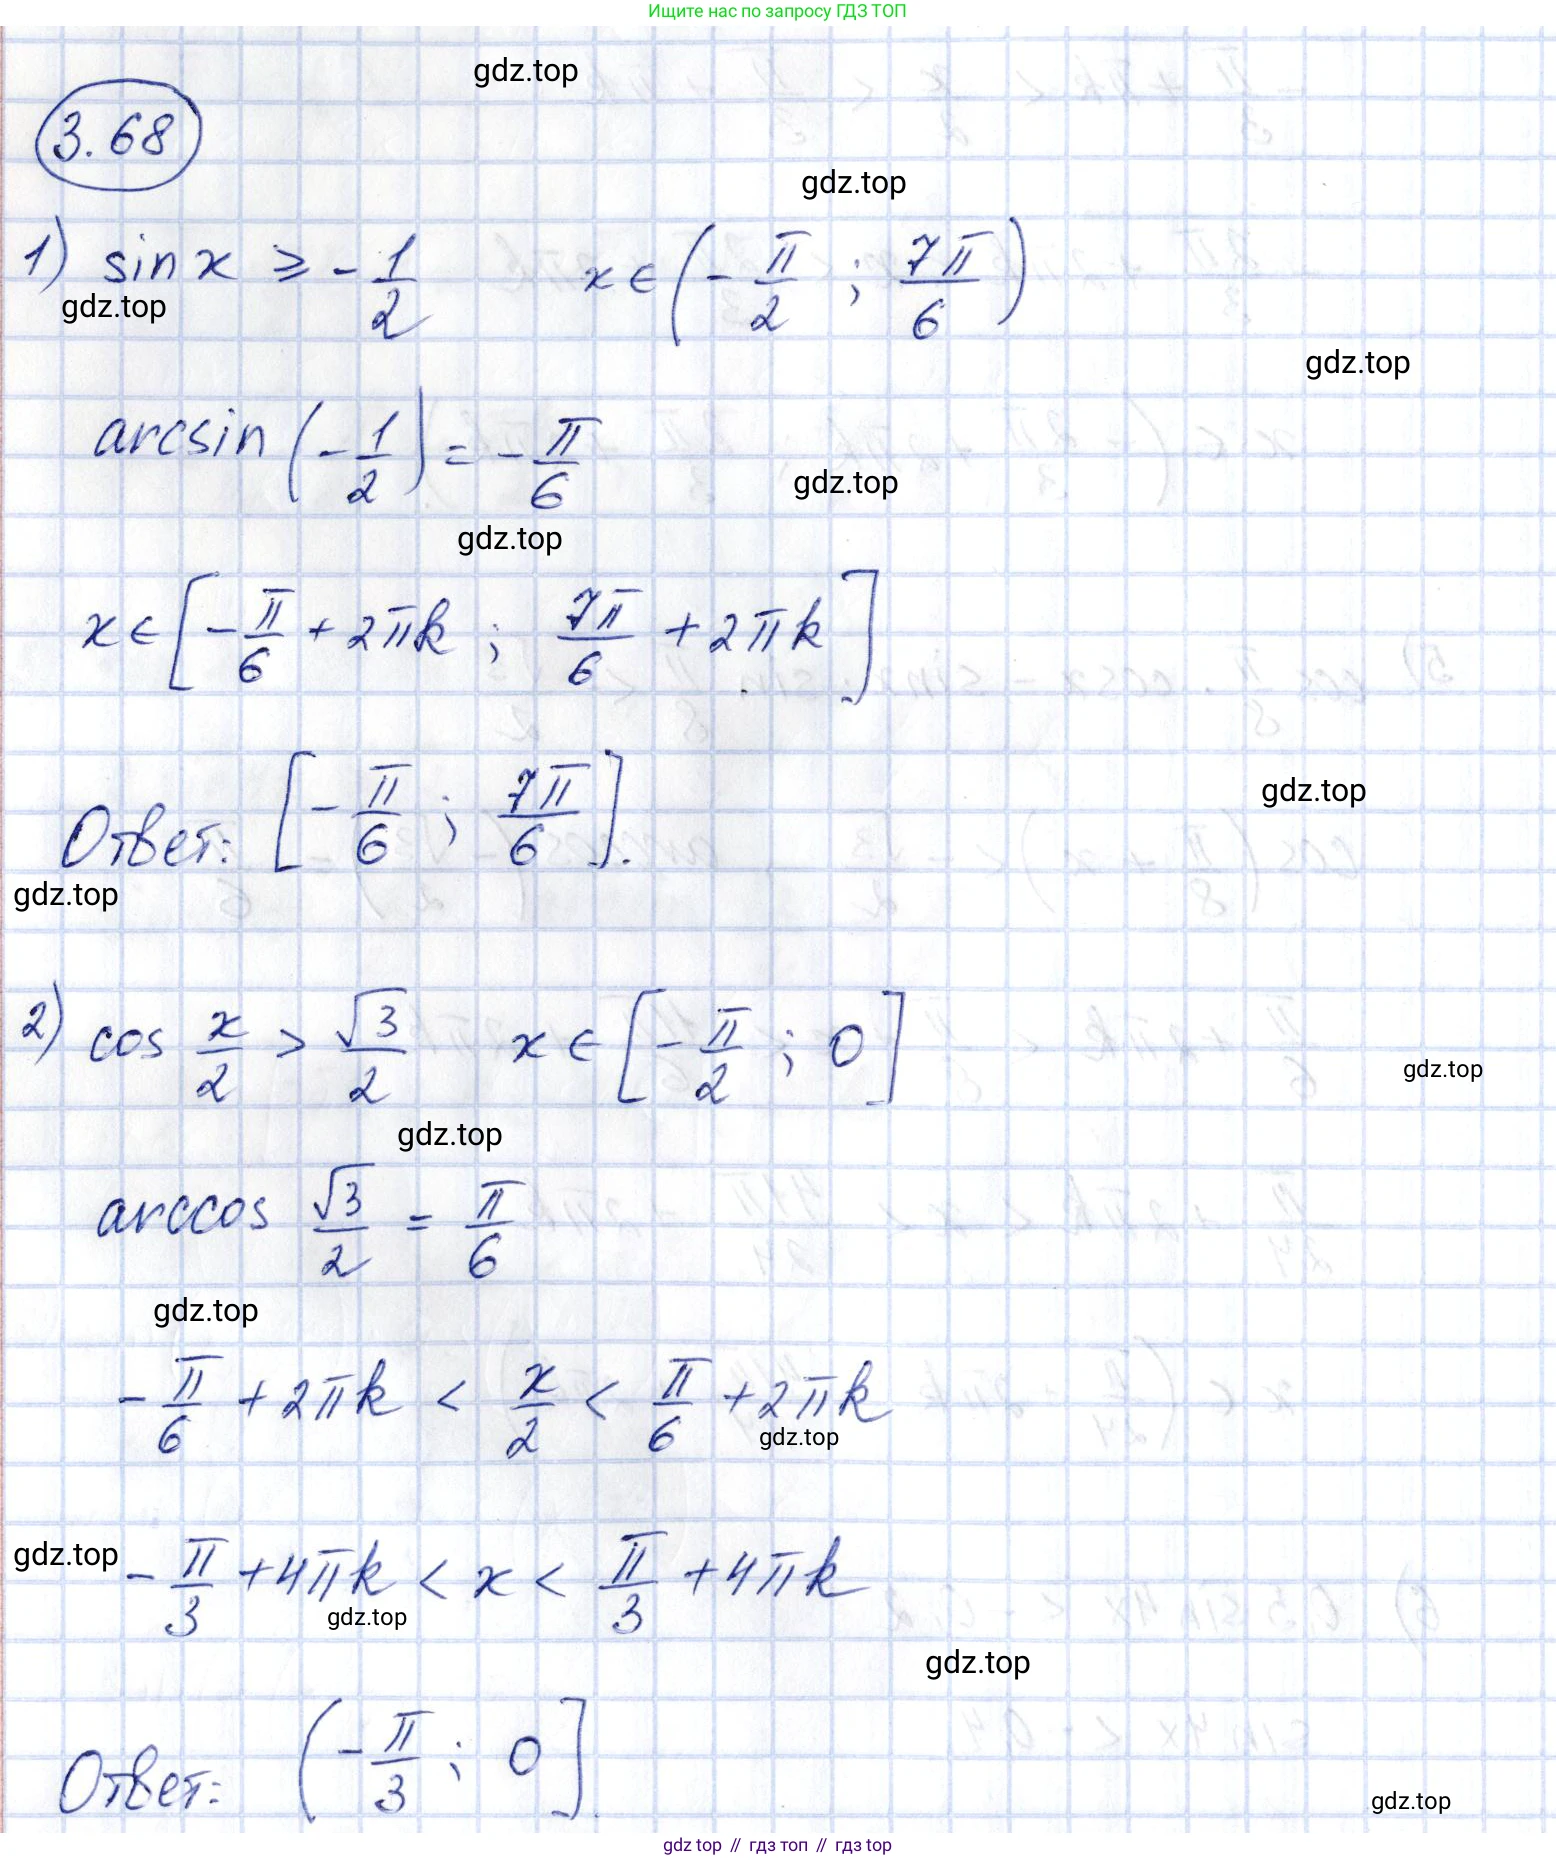 Ищите нас по запросу ГДЗ ТОП
gdz.top
3.68
gdz.top
1) sin x ≥ -1/2   x ∈ (-π/2 ; 7π/6)
gdz.top
gdz.top
arcsin (-1/2) = -π/6
gdz.top
gdz.top
x ∈ [-π/6 + 2πk ; 7π/6 + 2πk]
gdz.top
Ответ: [-π/6 ; 7π/6].
gdz.top
2) cos x/2 > √3/2   x ∈ [-π/2 ; 0]
gdz.top
gdz.top
arccos √3/2 = π/6
gdz.top
-π/6 + 2πk < x/2 < π/6 + 2πk
gdz.top
gdz.top
-π/3 + 4πk < x < π/3 + 4πk
gdz.top
gdz.top
Ответ: (-π/3 ; 0].
gdz.top
gdz top // гдз топ // гдз top